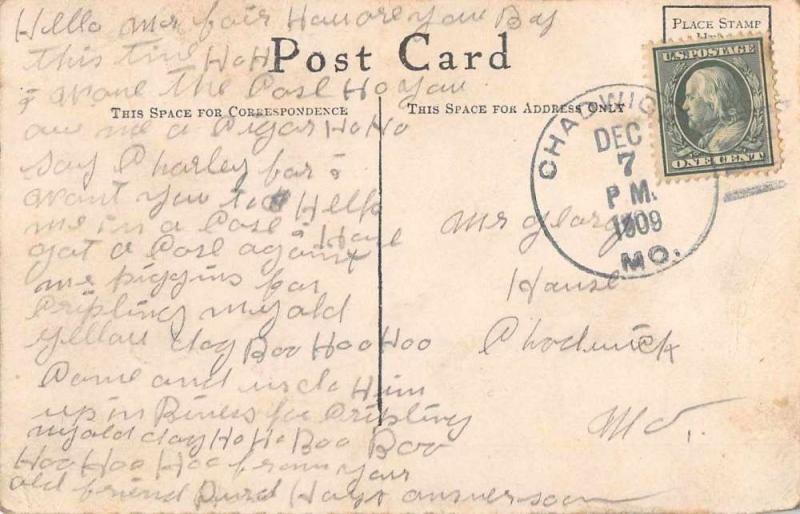 Hello Mr fair Hanore you Bay
this time Ho Ho
Post Card
PLACE STAMP
U.S. POSTAGE
ONE CENT
CHADWICK
DEC
7
P.M.
1909
MO.
THIS SPACE FOR CORRESPONDENCE
THIS SPACE FOR ADDRESS ONLY
& wone the Case Ho you
ow me a Cigar Ho Ho
Say Charley far &
want you to Help
me in a Case & Have
got a Case against
me piggins for
Cripling my old
yellow dog Boo Hoo Hoo
Come and Him
up in Biness for Cripling
my old dog Ho Ho Boo Boo
Hoo Hoo Hoo from your
old friend Hays answer soon
Mr George
House
Chadwick
Mo.